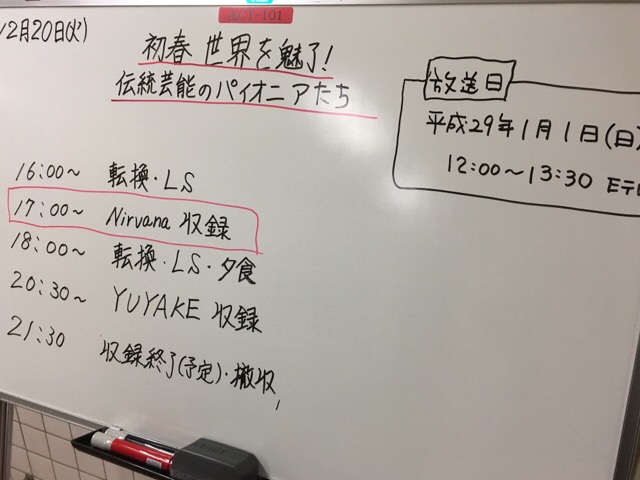 12月20日(火)
初春 世界を魅了!
伝統芸能のパイオニアたち
放送日
平成29年1月1日(日)
12:00〜13:30 Eテレ
16:00〜 転換・LS
17:00〜 Nirvana 収録
18:00〜 転換・LS・夕食
20:30〜 YUYAKE 収録
21:30 収録終了(予定)・撤収